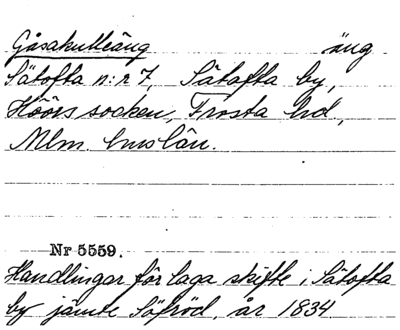 Gåsakulleäng äng
Sätofta n:r 7, Sätofta by,
Höörs socken, Frosta hd,
Mlm. hus län.
Nr 5559.
Handlingar för laga skifte i Sätofta
by jämte Söfröd, år 1834